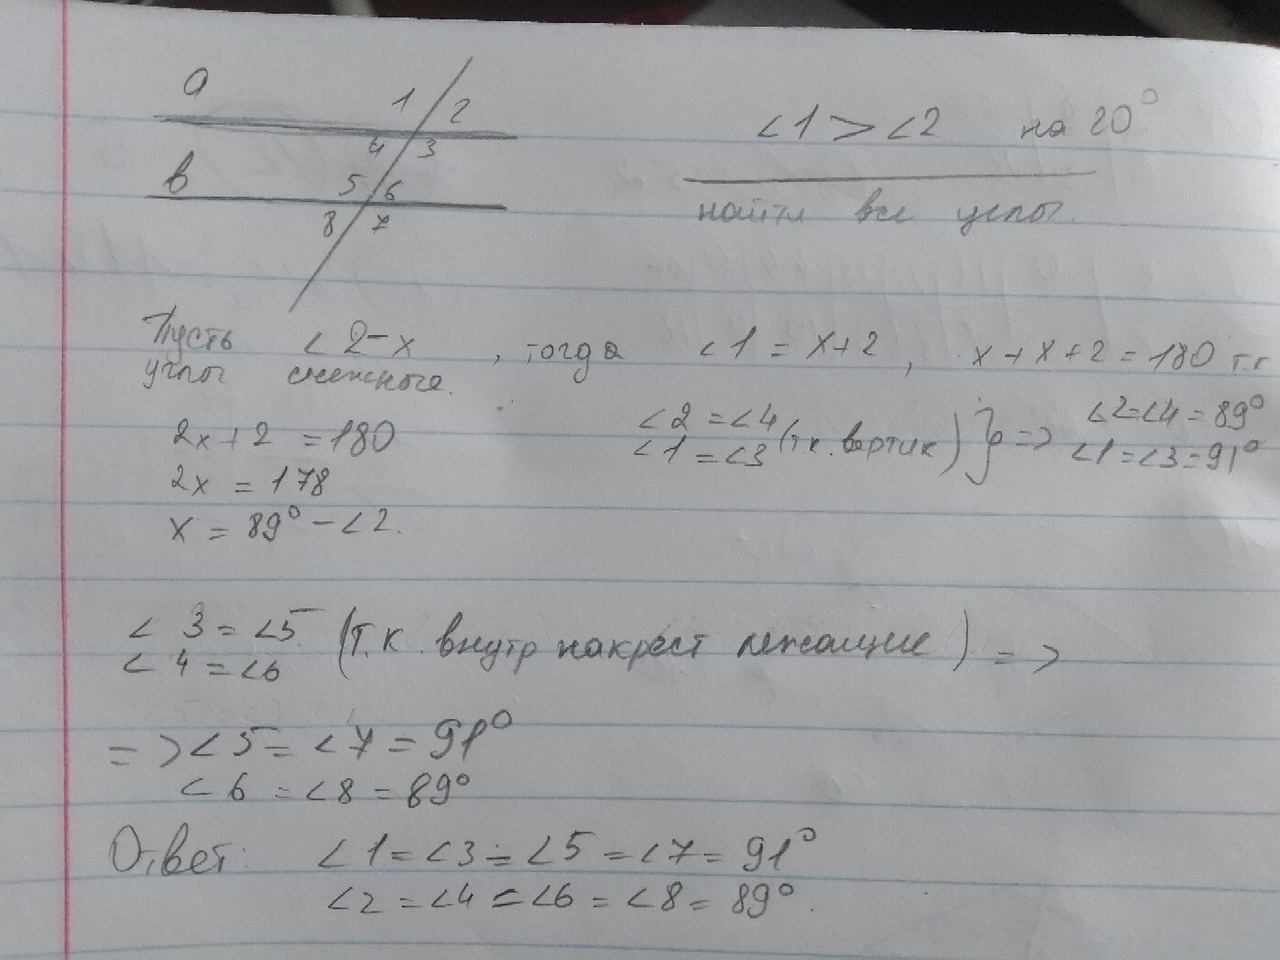 a
1 2
4 3
b
5 6
8 7
∠1 > ∠2 на 20°
найти все углы.
Пусть ∠2 - x, тогда ∠1 = x+2, x+x+2 = 180 т.к
углы смежные.
2x+2 = 180
2x = 178
x = 89° - ∠2.
∠2 = ∠4
∠1 = ∠3 (т.к. вертик) } =>
∠2=∠4=89°
∠1=∠3=91°
∠3 = ∠5
∠4 = ∠6 (т.к. внутр накрест лежащие) =>
=> ∠5 = ∠7 = 91°
∠6 = ∠8 = 89°
Ответ: ∠1 = ∠3 = ∠5 = ∠7 = 91°
∠2 = ∠4 = ∠6 = ∠8 = 89°.